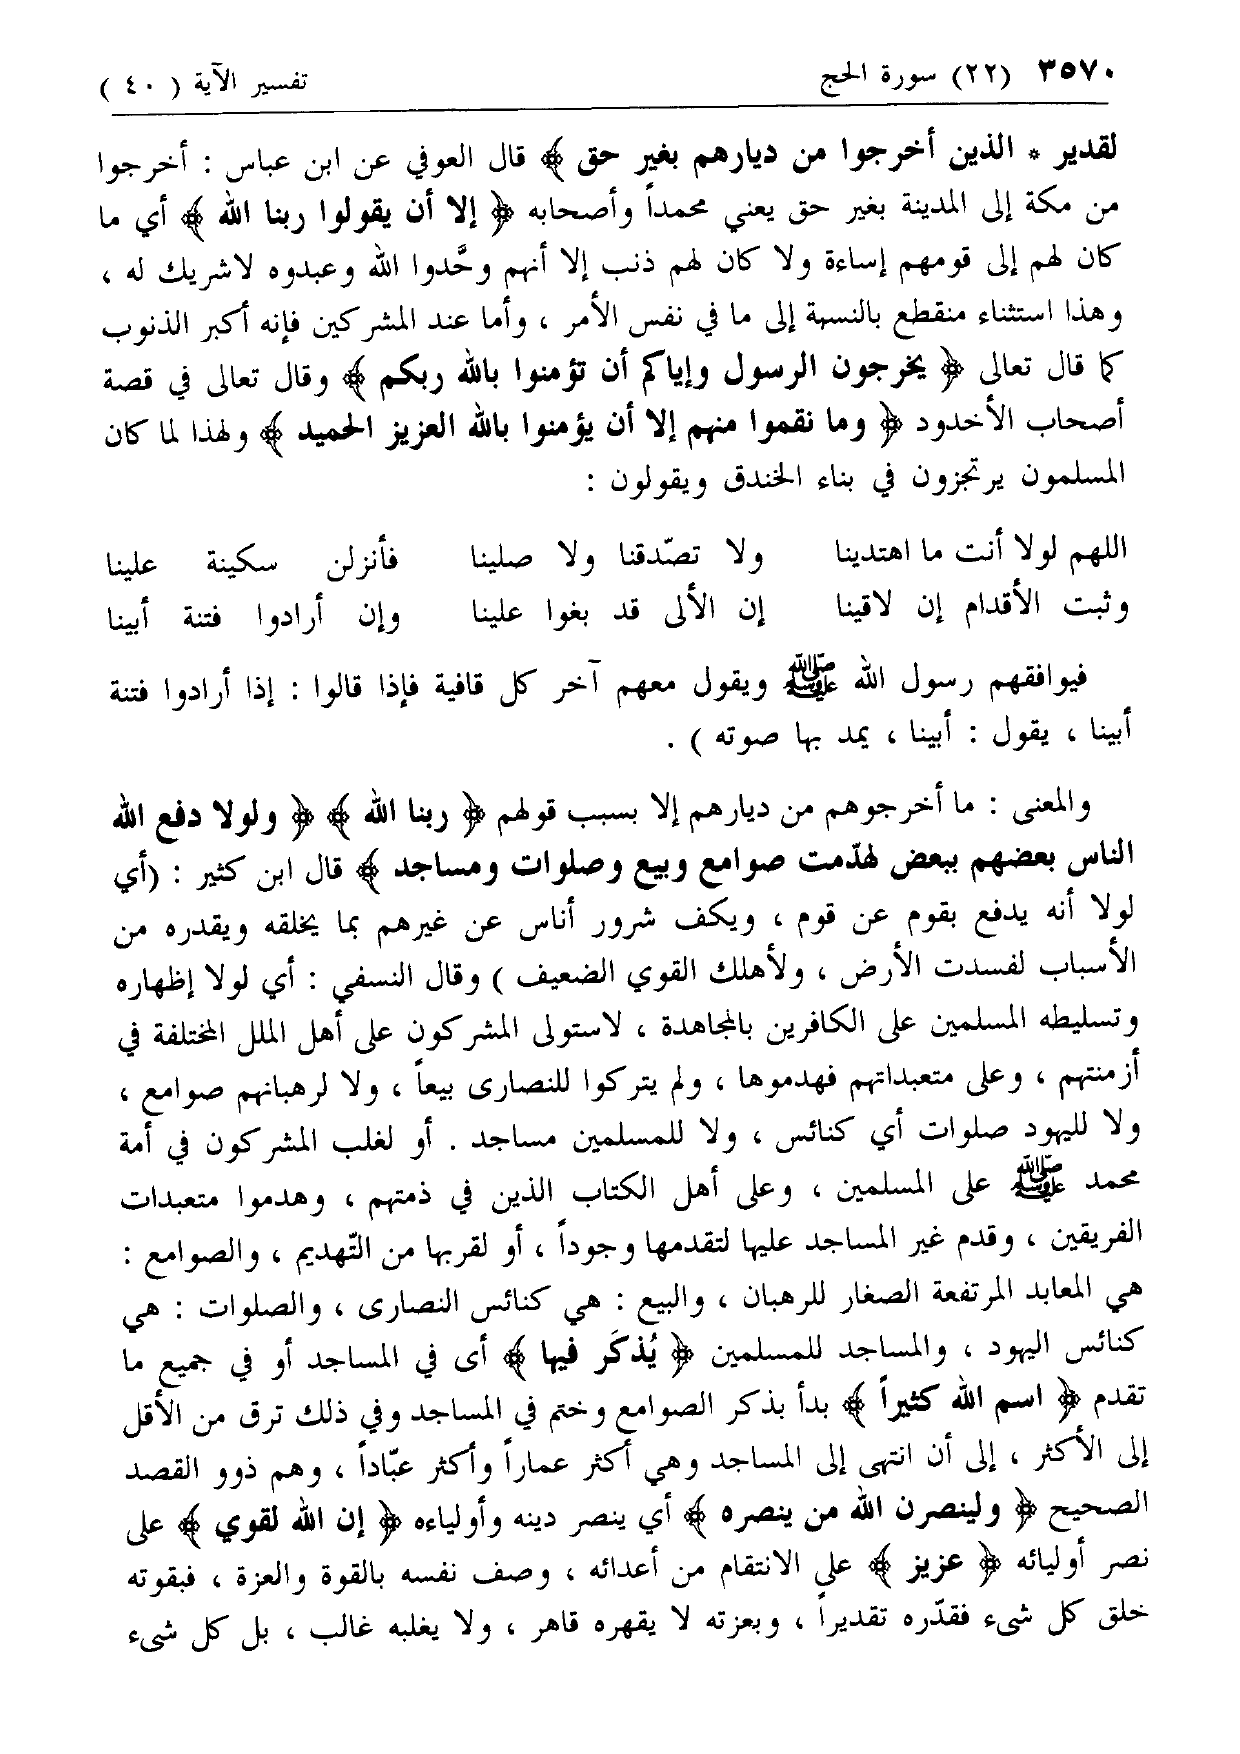 ٣٥٧٠ (٢٢) سورة الحج تفسير الآية ( ٤٠ )
لقدير * الذين أخرجوا من ديارهم بغير حق ﴾ قال العوفي عن ابن عباس : أخرجوا
من مكة إلى المدينة بغير حق يعني محمداً وأصحابه ﴿ إلا أن يقولوا ربنا الله ﴾ أي ما
كان لهم إلى قومهم إساءة ولا كان لهم ذنب إلا أنهم وحَّدوا الله وعبدوه لاشريك له ،
وهذا استثناء منقطع بالنسبة إلى ما في نفس الأمر ، وأما عند المشركين فإنه أكبر الذنوب
كما قال تعالى ﴿ يخرجون الرسول وإياكم أن تؤمنوا بالله ربكم ﴾ وقال تعالى في قصة
أصحاب الأخدود ﴿ وما نقموا منهم إلا أن يؤمنوا بالله العزيز الحميد ﴾ ولهذا لما كان
المسلمون يرتجزون في بناء الخندق ويقولون :
اللهم لولا أنت ما اهتدينا ولا تصّدقنا ولا صلينا فأنزلن سكينة علينا
وثبت الأقدام إن لاقينا إن الألى قد بغوا علينا وإن أرادوا فتنة أبينا
فيوافقهم رسول الله ﷺ ويقول معهم آخر كل قافية فإذا قالوا : إذا أرادوا فتنة
أبينا ، يقول : أبينا ، يمد بها صوته ) .
والمعنى : ما أخرجوهم من ديارهم إلا بسبب قولهم ﴿ ربنا الله ﴾ ﴿ ولولا دفع الله
الناس بعضهم ببعض لهدّمت صوامع وبيع وصلوات ومساجد ﴾ قال ابن كثير : (أي
لولا أنه يدفع بقوم عن قوم ، ويكف شرور أناس عن غيرهم بما يخلقه ويقدره من
الأسباب لفسدت الأرض ، ولأهلك القوي الضعيف ) وقال النسفي : أي لولا إظهاره
وتسليطه المسلمين على الكافرين بالمجاهدة ، لاستولى المشركون على أهل الملل المختلفة في
أزمنتهم ، وعلى متعبداتهم فهدموها ، ولم يتركوا للنصارى بيعاً ، ولا لرهبانهم صوامع ،
ولا لليهود صلوات أي كنائس ، ولا للمسلمين مساجد . أو لغلب المشركون في أمة
محمد ﷺ على المسلمين ، وعلى أهل الكتاب الذين في ذمتهم ، وهدموا متعبدات
الفريقين ، وقدم غير المساجد عليها لتقدمها وجوداً ، أو لقربها من التّهديم ، والصوامع :
هي المعابد المرتفعة الصغار للرهبان ، والبيع : هي كنائس النصارى ، والصلوات : هي
كنائس اليهود ، والمساجد للمسلمين ﴿ يُذكَر فيها ﴾ أى في المساجد أو في جميع ما
تقدم ﴿ اسم الله كثيراً ﴾ بدأ بذكر الصوامع وختم في المساجد وفي ذلك ترق من الأقل
إلى الأكثر ، إلى أن انتهى إلى المساجد وهي أكثر عماراً وأكثر عبّاداً ، وهم ذوو القصد
الصحيح ﴿ ولينصرن الله من ينصره ﴾ أي ينصر دينه وأولياءه ﴿ إن الله لقوي ﴾ على
نصر أوليائه ﴿ عزيز ﴾ على الانتقام من أعدائه ، وصف نفسه بالقوة والعزة ، فبقوته
خلق كل شىء فقدّره تقديراً ، وبعزته لا يقهره قاهر ، ولا يغلبه غالب ، بل كل شىء